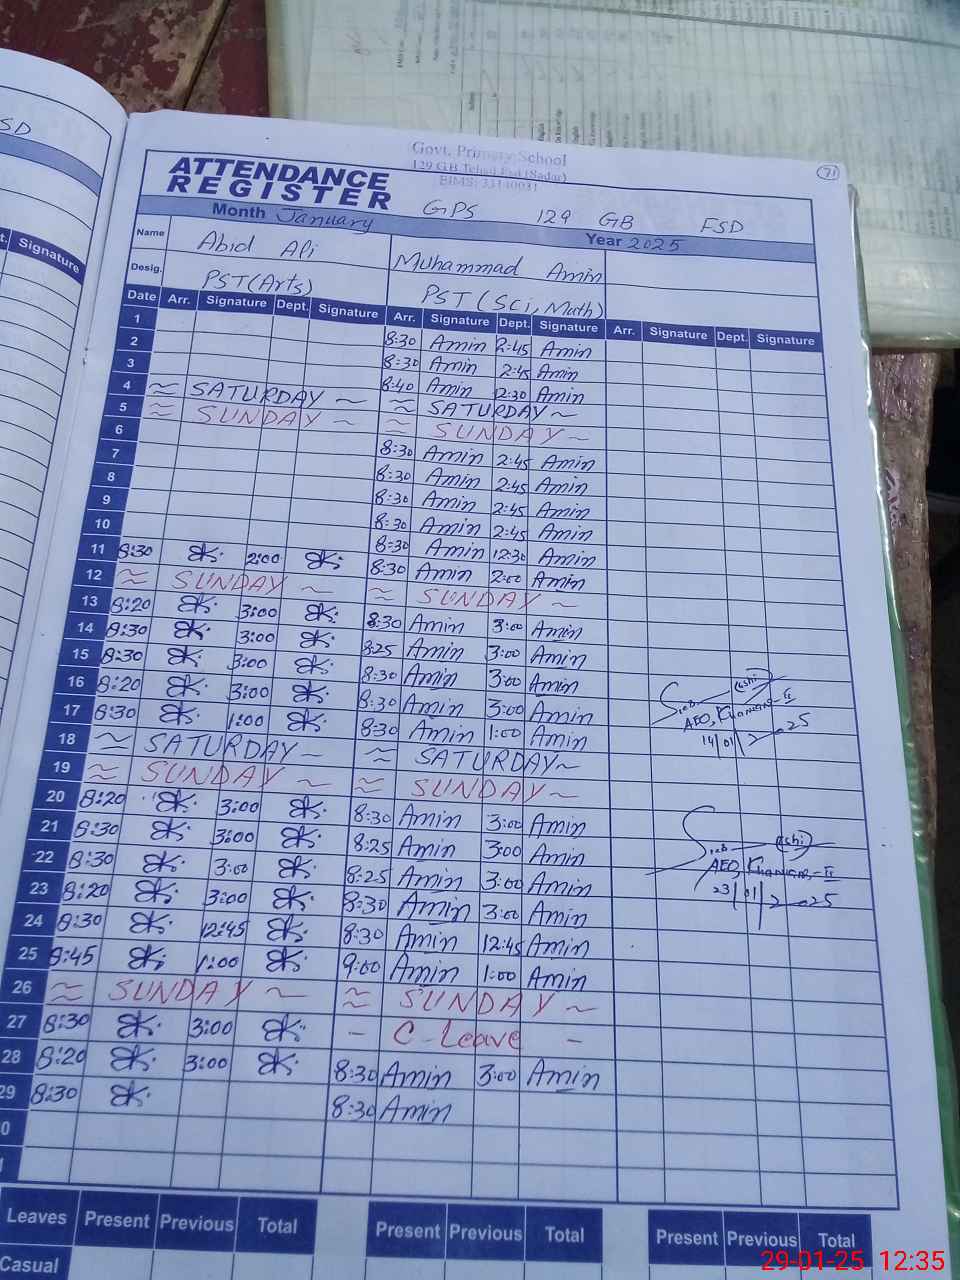 SD
Signature
71
Govt. Primary School
129 G.B Tehsil Fsd (Sadar)
ATTENDANCE
REGISTER
GPS 129 GB FSD
Month January Year 2025
Name Abid Ali Muhammad Amin
Desig. PST(Arts) PST(Sci, Math)
Date Arr. Signature Dept. Signature Arr. Signature Dept. Signature Arr. Signature Dept. Signature
1 8:30 Amin 2:45 Amin
2 8:30 Amin 2:45 Amin
3 8:40 Amin 12:30 Amin
4 ≈ SATURDAY ~ ≈ SATURDAY ~
5 ≈ SUNDAY ~ ≈ SUNDAY ~
6 8:30 Amin 2:45 Amin
7 8:30 Amin 2:45 Amin
8 8:30 Amin 2:45 Amin
9 8:30 Amin 2:45 Amin
10 8:30 Amin 12:30 Amin
11 8:30 2:00 8:30 Amin 2:00 Amin
12 ≈ SUNDAY ~ ≈ SUNDAY ~
13 8:20 3:00 8:30 Amin 3:00 Amin
14 8:30 3:00 8:25 Amin 3:00 Amin
15 8:30 3:00 8:30 Amin 3:00 Amin
16 8:20 3:00 8:30 Amin 3:00 Amin
17 8:30 1:00 8:30 Amin 1:00 Amin
AEO, Khanuana-II
14/01/2025
18 ≈ SATURDAY ~ ≈ SATURDAY ~
19 ≈ SUNDAY ~ ≈ SUNDAY ~
20 8:20 3:00 8:30 Amin 3:00 Amin
21 8:30 3:00 8:25 Amin 3:00 Amin
22 8:30 3:00 8:25 Amin 3:00 Amin
AEO, Khanuana-II
23/01/2025
23 8:20 3:00 8:30 Amin 3:00 Amin
24 8:30 12:45 8:30 Amin 12:45 Amin
25 8:45 1:00 9:00 Amin 1:00 Amin
26 ≈ SUNDAY ~ ≈ SUNDAY ~
27 8:30 3:00 - C-Leave -
28 8:20 3:00 8:30 Amin 3:00 Amin
29 8:30 8:30 Amin
Leaves Present Previous Total Present Previous Total Present Previous Total
Casual
29-01-25 12:35